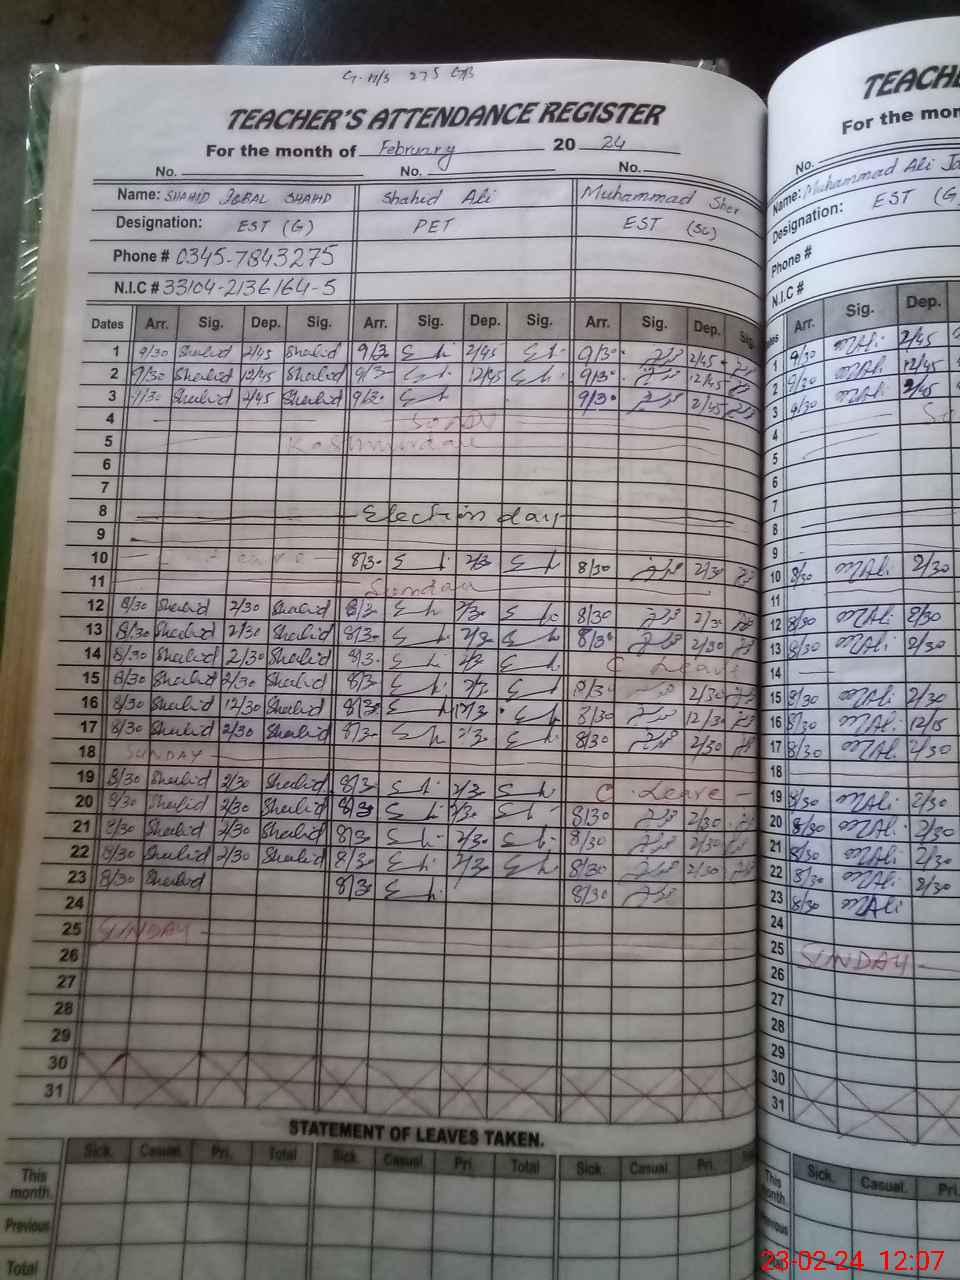 G.H/S 275 GB
TEACHER'S ATTENDANCE REGISTER
For the month of February 20 24
No. No. No.
Name: SHAHID IQBAL SHAHID Shahid Ali Muhammad Sher
Designation: EST (G) PET EST (SC)
Phone # 0345-7843275
N.I.C # 33104-2136164-5
Dates Arr. Sig. Dep. Sig. Arr. Sig. Dep. Sig. Arr. Sig. Dep. Sig.
1 9/30 Shahid 2/45 Shahid 9/30 2/45 9/30 2/45
2 9/30 Shahid 12/45 Shahid 9/30 12/45 9/30 12/45
3 9/30 Shahid 2/45 Shahid 9/30 9/30 2/45
4 Sunday
5 Kashmirday
6
7
8 Election day
9
10 8/30 2/30 8/30 2/30
11 Sunday
12 8/30 Shahid 2/30 Shahid 8/30 2/30 8/30 2/30
13 8/30 Shahid 2/30 Shahid 8/30 2/30 8/30 2/30
14 8/30 Shahid 2/30 Shahid 8/30 2/30 C Leave
15 8/30 Shahid 2/30 Shahid 8/30 2/30 8/30 2/30
16 8/30 Shahid 12/30 Shahid 8/30 12/30 8/30 12/30
17 8/30 Shahid 2/30 Shahid 8/30 2/30 8/30 2/30
18 SUNDAY
19 8/30 Shahid 2/30 Shahid 8/30 2/30 C. Leave
20 8/30 Shahid 2/30 Shahid 8/30 2/30 8/30 2/30
21 8/30 Shahid 2/30 Shahid 8/30 2/30 8/30 2/30
22 8/30 Shahid 2/30 Shahid 8/30 2/30 8/30 2/30
23 8/30 Shahid 8/30 8/30
24
25 SUNDAY
26
27
28
29
30
31
STATEMENT OF LEAVES TAKEN.
Sick. Casual. Pri. Total Sick. Casual Pri. Total Sick. Casual Pri.
This month.
Previous
Total
TEACH
For the mon
No.
Name: Muhammad Ali
Designation: EST (G
Phone #
N.I.C #
Arr. Sig. Dep.
1 9/30 MAli 2/45
2 9/30 MAli 12/45
3 9/30 MAli 2/45
4
5
6
7
8
9
10 8/30 MAli 2/30
11
12 8/30 MAli 2/30
13 8/30 MAli 2/30
14
15 8/30 MAli 2/30
16 8/30 MAli 12/15
17 8/30 MAli 2/30
18
19 8/30 MAli 2/30
20 8/30 MAli 2/30
21 8/30 MAli 2/30
22 8/30 MAli 2/30
23 8/30 MAli
24
25 SUNDAY
26
27
28
29
30
31
Sick. Casual. Pri.
This month.
23-02-24 12:07